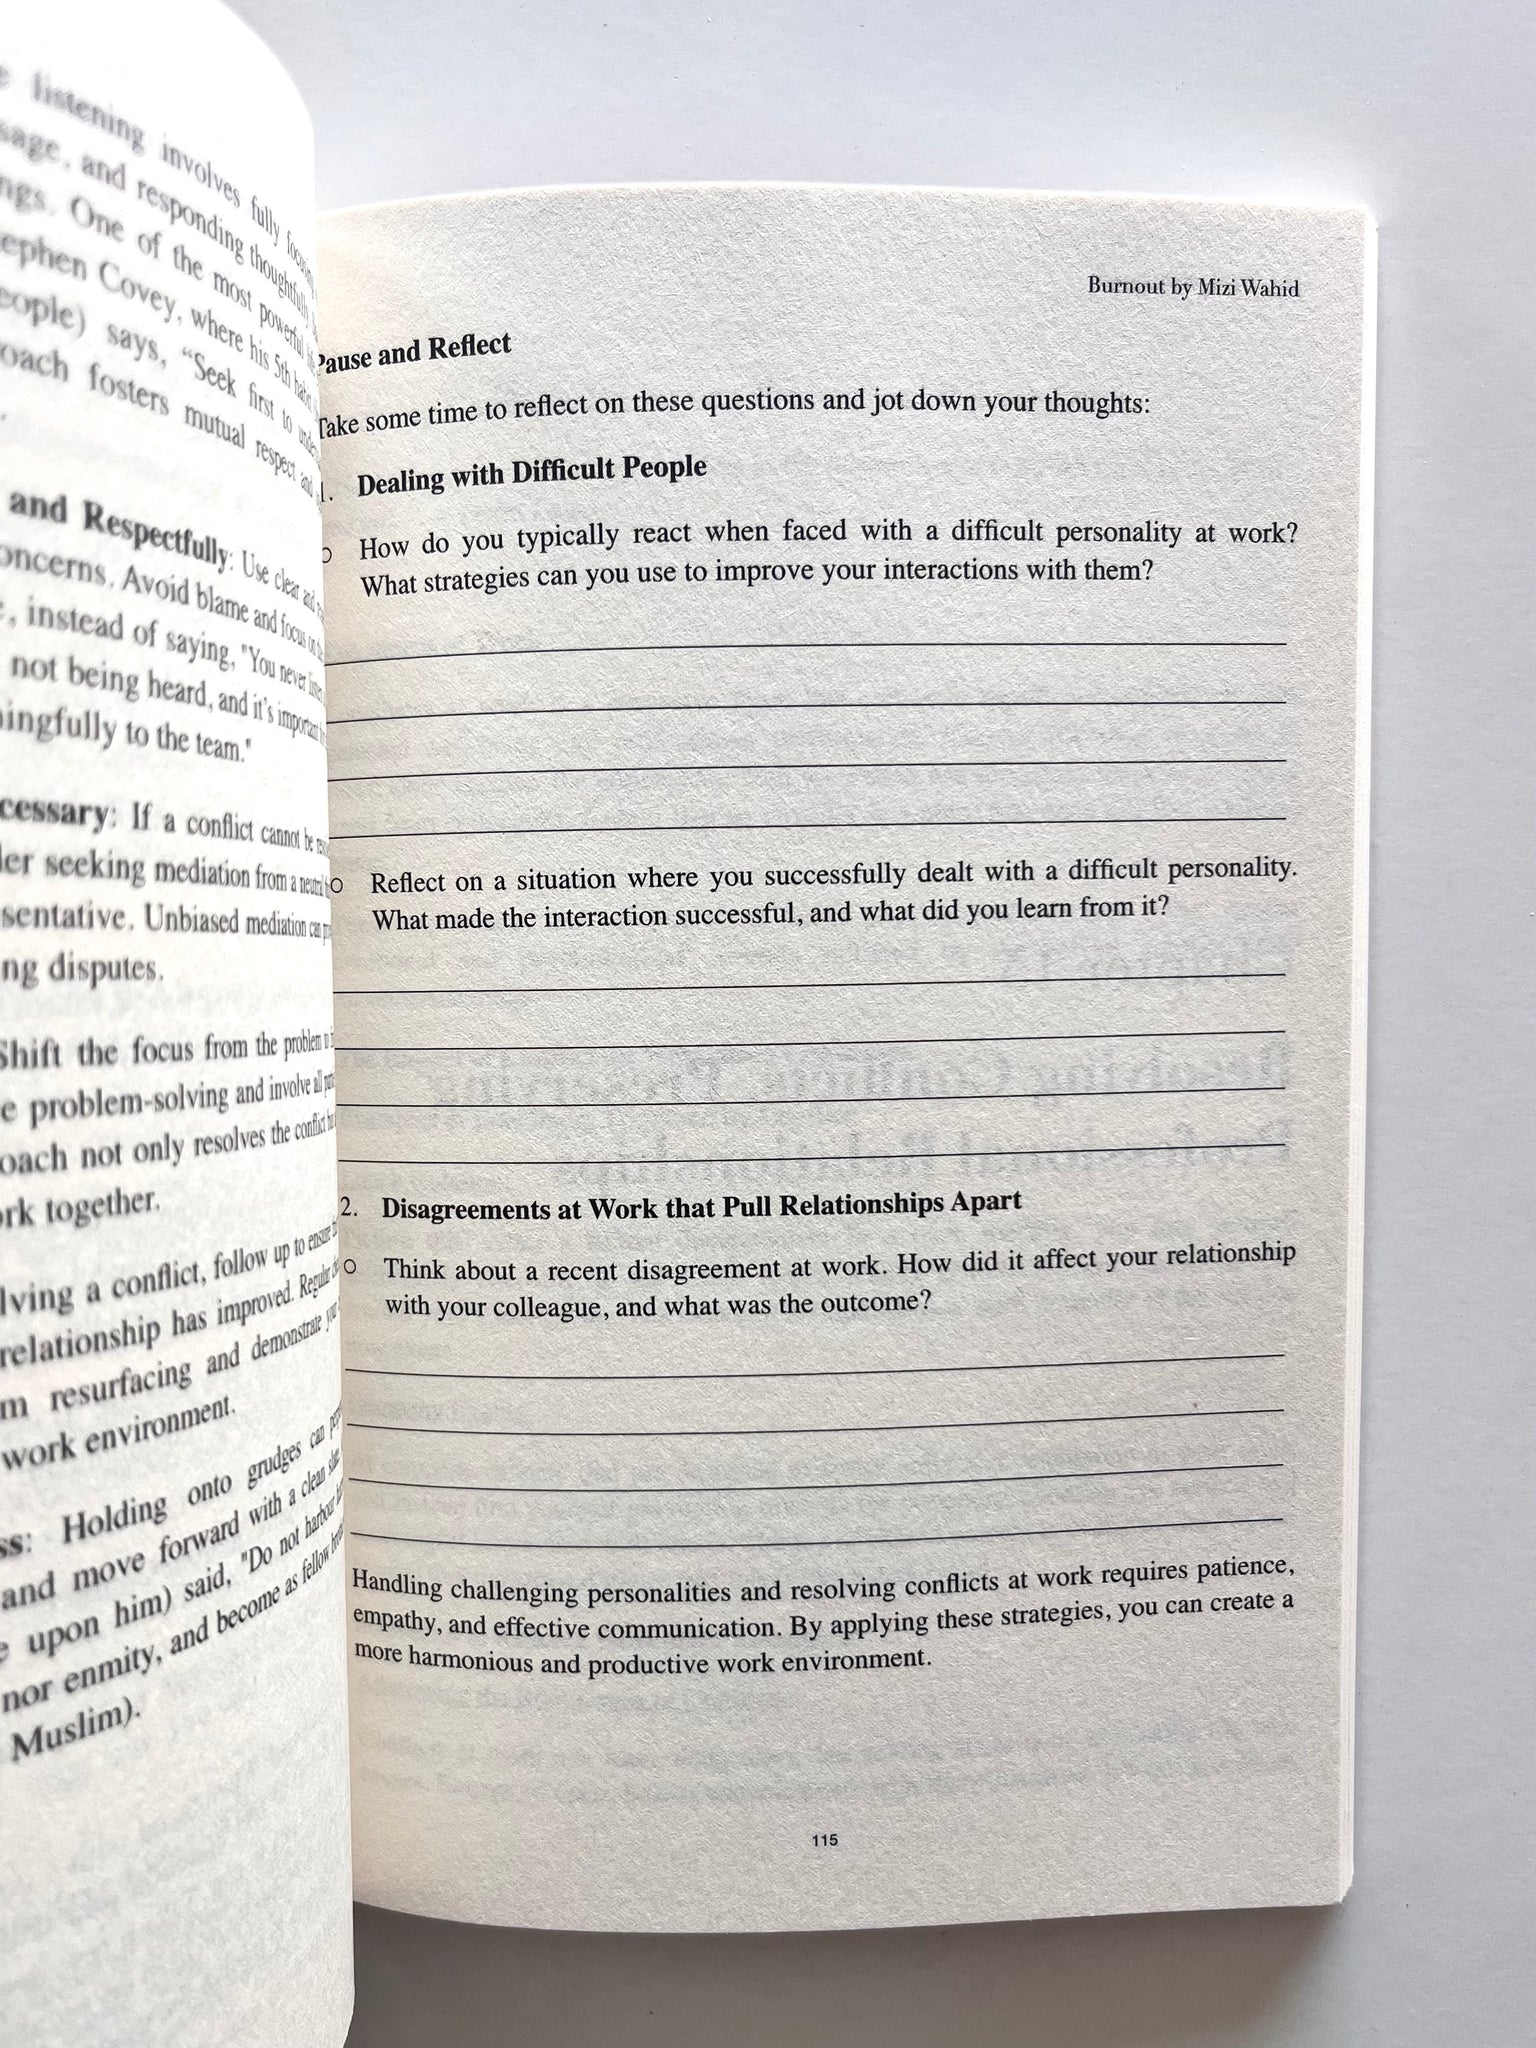 listening involves fully
and responding thoughtfully
One of the most powerful
Stephen Covey, where his 5th habit
says, "Seek first to
fosters mutual respect and
and Respectfully: Use clear and
Avoid blame and focus on the
instead of saying, "You never listen
not being heard, and it's important
to the team."
If a conflict cannot be
seeking mediation from a neutral
Unbiased mediation can
disputes.
Shift the focus from the problem to
problem-solving and involve all
not only resolves the conflict
together.
a conflict, follow up to ensure
relationship has improved.
resurfacing and demonstrate
work environment.
Holding onto grudges can
and move forward with a clean
upon him) said, "Do not harbour
nor enmity, and become as fellow
Muslim).
Burnout by Mizi Wahid
Pause and Reflect
Take some time to reflect on these questions and jot down your thoughts:
1. Dealing with Difficult People
○ How do you typically react when faced with a difficult personality at work?
What strategies can you use to improve your interactions with them?
○ Reflect on a situation where you successfully dealt with a difficult personality.
What made the interaction successful, and what did you learn from it?
2. Disagreements at Work that Pull Relationships Apart
○ Think about a recent disagreement at work. How did it affect your relationship
with your colleague, and what was the outcome?
Handling challenging personalities and resolving conflicts at work requires patience,
empathy, and effective communication. By applying these strategies, you can create a
more harmonious and productive work environment.
115